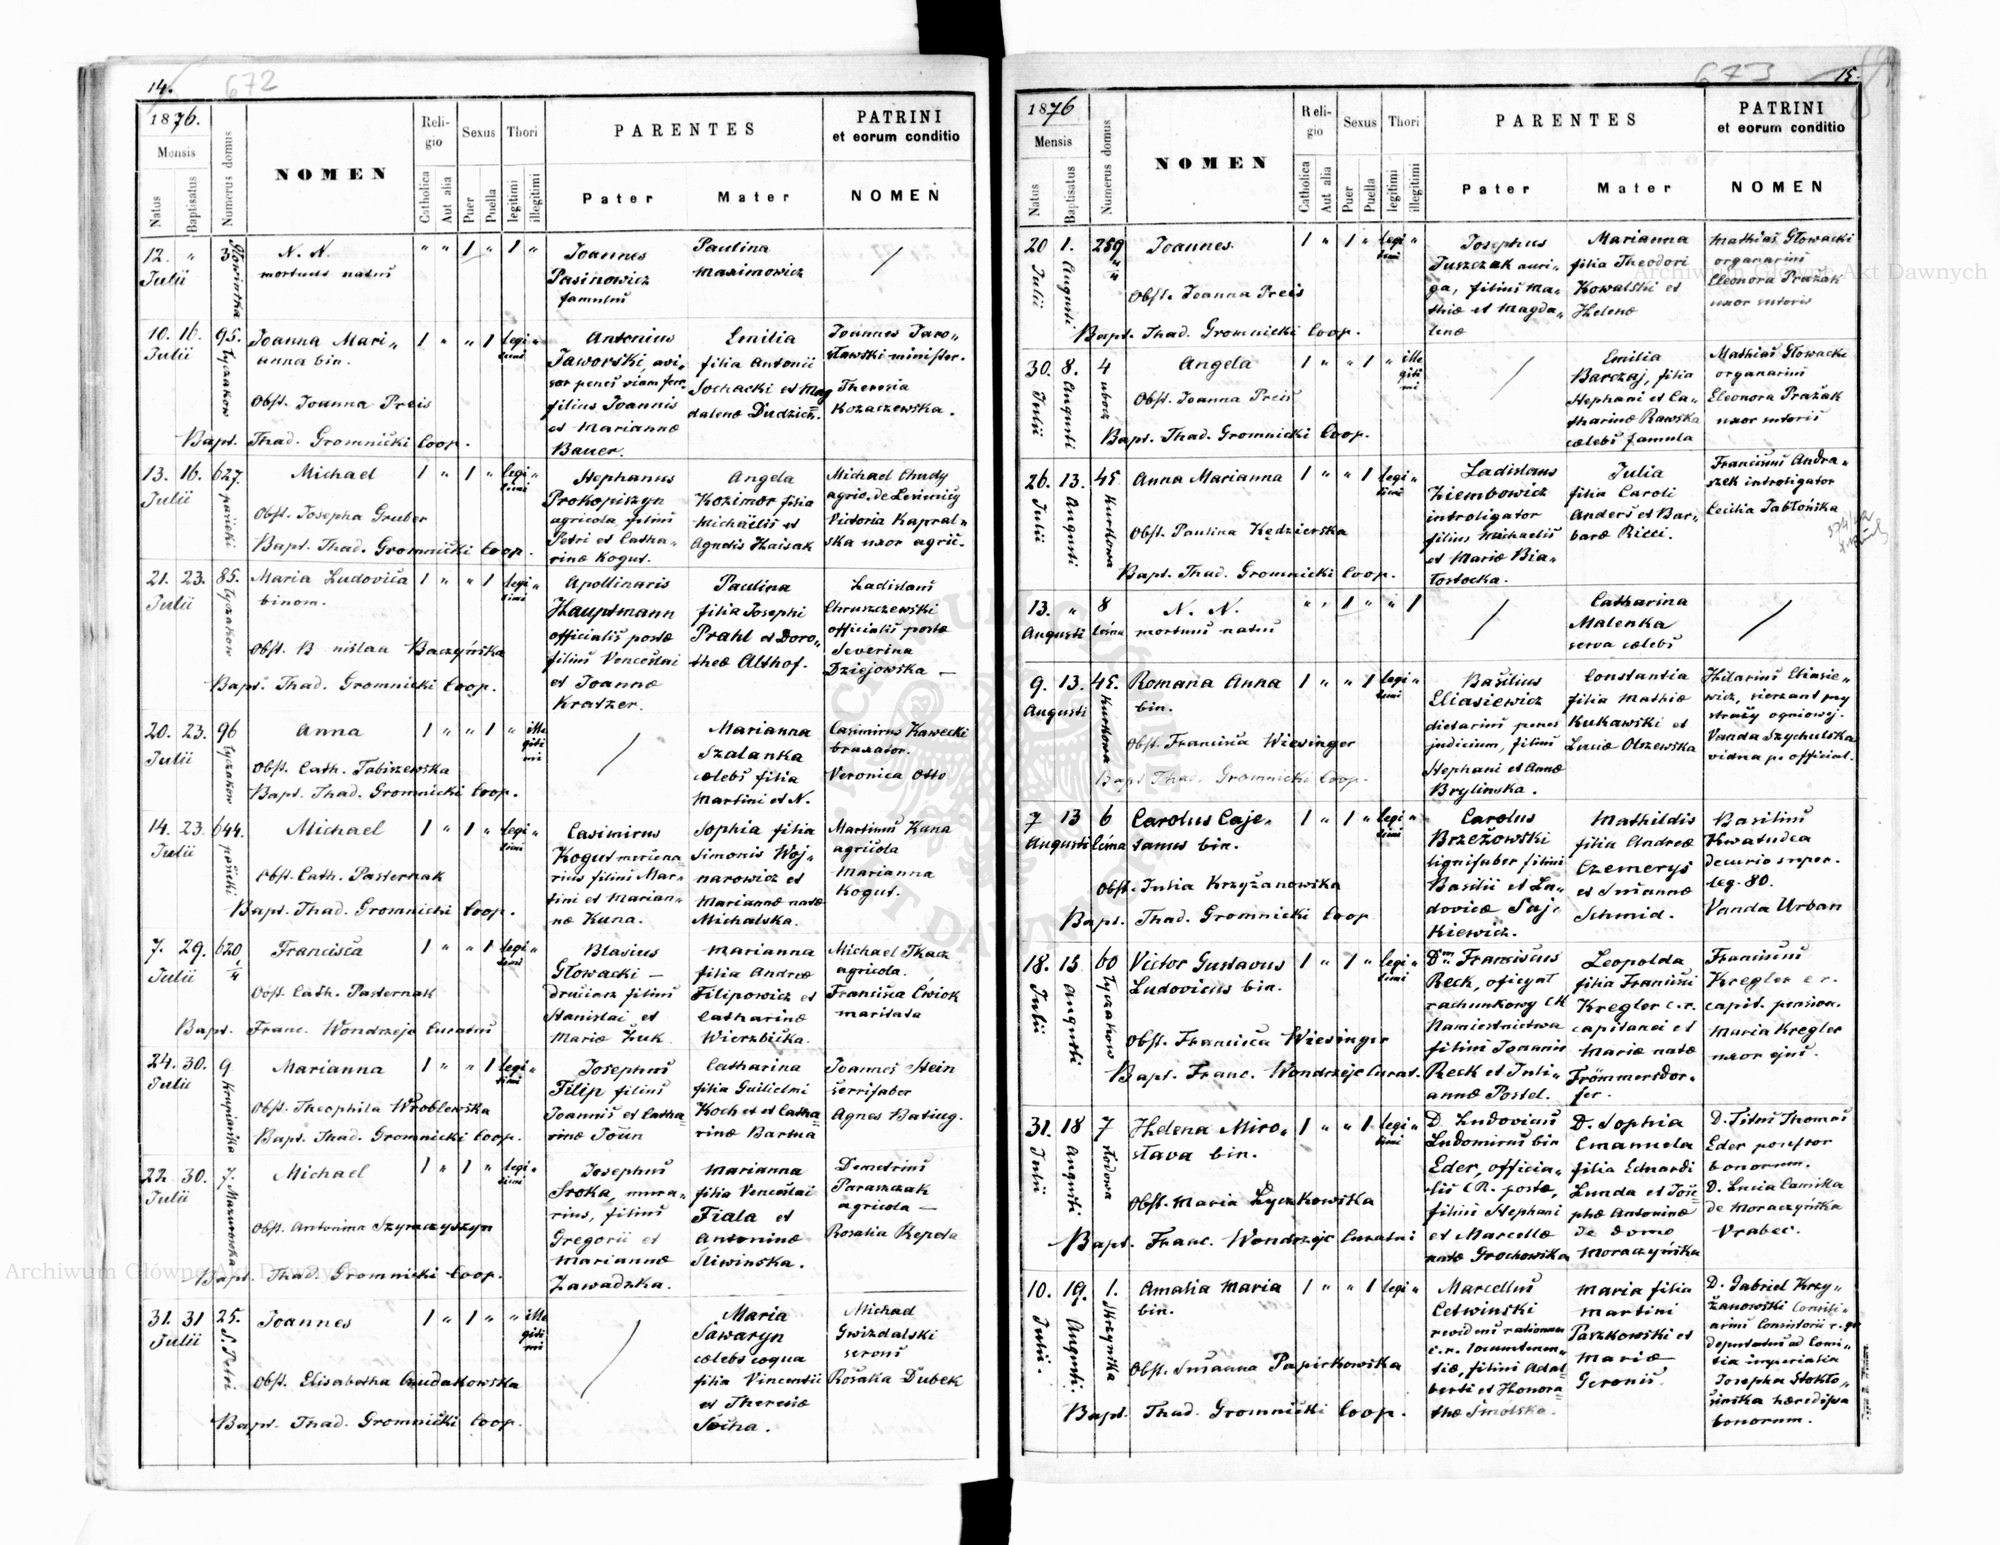 14.
672
1876.
Mensis
Natus
Baptisatus
Numerus domus
NOMEN
Religio
Catholica
Aut alia
Sexus
Puer
Puella
Thori
legitimi
illegitimi
PARENTES
Pater
Mater
PATRINI
et eorum conditio
NOMEN
12. " 3
Julii
N. N.
mortuus natus
" " 1 " 1 "
Joannes
Pasinowicz
famulus
Paulina
Maximowicz
10. 16. 95.
Julii
Łyczakow
Joanna Mari„
anna bin.
Obst. Joanna Preis
Bapt. Thad. Gromnicki Coop.
1 " " 1 legi „
timi
Antonius
Jaworski, avi„
sor penes viam ferr.
filius Joannis
et Mariannæ
Bauer.
Emilia
filia Antonii
Sochacki et Mag
dalenæ Dudzich.
Joannes Jaro„
sławski minister.
Theresia
Kozaczewska.
13. 16. 627.
Julii
pasieki
Michael
Obst. Josepha Gruber
Bapt. Thad. Gromnicki Coop.
1 " 1 " legi „
timi
Stephanus
Prokopiszyn
agricola, filius
Petri et Catha„
rinæ Kogut.
Angela
Kozimor filia
Michaëlis et
Agnetis Haisak
Michael Chudy
agric. de Lesienicy
Victoria Kapral„
ska uxor agric.
21. 23. 85.
Julii
Łyczakow
Maria Ludovica
binom.
Obst. B nislaa Baczyńska
Bapt. Thad. Gromnicki Coop.
1 " " 1 legi „
timi
Apollinaris
Hauptmann
officialis postæ
filius Venceslai
et Joannæ
Kratzer.
Paulina
filia Josephi
Prahl et Doro„
theæ Althof.
Ladislaus
Chruszczewski
officialis postæ
Severina
Dziejowska —
20. 23. 96
Julii
Łyczakow
Anna
Obst. Cath. Tabiszewska
Bapt. Thad. Gromnicki Coop.
1 " " 1 " ille
giti
mi
Marianna
Szalanka
cælebs filia
Martini et N.
Casimirus Kawecki
braxator.
Veronica Otto
14. 23. 644.
Julii
pasieki
Michael
Obst. Cath. Pasternak
Bapt. Thad. Gromnicki Coop.
1 " 1 " legi „
timi
Casimirus
Kogut mercena
rius filius Mar„
tini et Marian„
næ Kuna.
Sophia filia
Simonis Woj„
narowicz et
Mariannæ natæ
Michalska.
Martinus Kuna
agricola
Marianna
Kogut.
7. 29. 620
Julii
Francisca
Obst. Cath. Pasternak
Bapt. Franc. Wondrzejc Curatus
1 " " 1 legi „
timi
Blasius
Głowacki —
druciarz filius
Stanislai et
Mariæ Żuk
Marianna
filia Andreæ
Filipowicz et
Catharinæ
Wierzbicka.
Michael Tkacz
agricola.
Francisca Ćwiok
maritata
24. 30. 9
Julii
Krupiarska
Marianna
Obst. Theophila Wroblewska
Bapt. Thad. Gromnicki Coop.
1 " " 1 legi „
timi
Josephus
Filip filius
Joannis et Catha
rinæ Joün
Catharina
filia Guilielmi
Koch et et Catha
rinæ Bartua
Joannes Stein
serrifaber
Agnes Batiug.
22. 30. 7.
Julii
Mazurowka
Michael
Obst. Antonina Szyraczyszyn
Bapt. Thad. Gromnicki Coop.
1 " 1 " legi „
timi
Josephus
Sroka, mura„
rius, filius
Gregorii et
Mariannæ
Zawadzka.
Marianna
filia Venceslai
Fiala et
Antoninæ
Śliwinska.
Demetrius
Paraszczak
agricola —
Rosalia Repeta
31. 31 25.
Julii
S. Petri
Joannes
Obst. Elisabetha Chudakowska
Bapt. Thad. Gromnicki Coop.
1 " 1 " " ille
giti
mi
Maria
Sawaryn
cælebs coqua
filia Vincentii
et Theresiæ
Socha.
Michael
Gwizdalski
servus
Rosalia Dubek
673
15.
1876
Mensis
Natus
Baptisatus
Numerus domus
NOMEN
Religio
Catholica
Aut alia
Sexus
Puer
Puella
Thori
legitimi
illegitimi
PARENTES
Pater
Mater
PATRINI
et eorum conditio
NOMEN
20 1. 259
Julii
Augusti
Joannes.
Obst. Joanna Preis
Bapt. Thad. Gromnicki Coop.
1 " 1 " legi „
timi
Josephus
Juszczak auri„
ga, filius Ma„
thiæ et Magda„
lenæ
Marianna
filia Theodori
Kowalski et
Helenæ
Mathias Głowacki
organarius
Eleonora Prażak
uxor sutoris
30. 8. 4
Julii
Augusti
ubocz
Angela
Obst. Joanna Preis
Bapt. Thad. Gromnicki Coop.
1 " " 1 " ille
giti
mi
Emilia
Barczaj, filia
Stephani et Ca„
tharinæ Rawska
cælebs famula
Mathias Głowacki
organarius
Eleonora Prażak
uxor sutoris
26. 13. 45.
Julii
Augusti
Kurkowa
Anna Marianna
Obst. Paulina Kędzierska
Bapt. Thad. Gromnicki Coop.
1 " " 1 legi „
timi
Ladislaus
Ziembowicz
introligator
filius Michaelis
et Mariæ Bia„
łostocka.
Julia
filia Caroli
Anders et Bar„
baræ Ricci.
Franciscus Andra„
szek introligator
Cecilia Jabłońska
13. " 8
Augusti
leśna
N. N.
mortuus natus
" " 1 " " 1
Catharina
Malenka
serva cælebs
9. 13. 45.
Augusti
Kurkowa
Romana Anna
bin.
Obst. Francisca Wiesinger
Bapt Thad. Gromnicki Coop.
1 " " 1 legi „
timi
Basilius
Eliasiewicz
dietarius penes
judicium, filius
Stephani et Annæ
Brylinska.
Constantia
filia Mathiæ
Kukawski et
Luciæ Olszewska
Hilarius Eliasie„
wicz, sierzant przy
straży ogniowej.
Vanda Szychulska
vidua p. official.
7 13 6
Augusti
leśna
Carolus Caje„
tanus bin.
Obst. Julia Krzyżanowska
Bapt. Thad. Gromnicki Coop
1 " 1 " legi „
timi
Carolus
Brzeżowski
lignifaber filius
Basilii et Lu
dovicæ Saj„
kiewicz.
Mathildis
filia Andreæ
Czemerys
et Susannæ
Schmid.
Basilius
Kwatudea
decurio super.
leg. 80.
Vanda Urban
18. 15 60
Julii
Augusti
Łyczakow
Victor Gustavus
Ludovicus bin.
Obst. Francisca Wiesinger
Bapt. Franc. Wondrzejc Curat.
1 " 1 " legi „
timi
Dnus Franciscus
Reck, oficyał
rachunkowy CK
Namiestnictwa
filius Joannis
Reck et Juli„
annæ Postel.
Leopolda
filia Francisci
Kregler c. r.
capitanei et
Mariæ natæ
Frömmersdor„
fer.
Franciscus
Kregler c r.
capit. pension.
Maria Kregler
uxor ejus.
31. 18 7
Julii
Augusti
Wodowa
Helena Miro„
slava bin.
Obst. Maria Łyczkowska
Bapt. Franc. Wondrzejc Curatus
1 " " 1 legi „
timi
D. Ludovicus
Ludomirus bin
Eder, officia„
lis CR. postæ,
filius Stephani
et Marcellæ
natæ Grochowska
D. Sophia
Emanuela
filia Eduardi
Lunda et Jose
phæ Antoninæ
de domo
Moraczyńska
D. Titus Thomas
Eder possessor
bonorum.
D. Lucia Camska
de Moraczyńska
Vrabec.
10. 19. 1.
Julii.
Augusti.
Skrzynska
Amalia Maria
bin.
Obst. Susanna Papirkowska
Bapt. Thad. Gromnicki Coop.
1 " " 1 legi „
Marcellus
Cetwinski
revidens rationum
c.r. locumtenen„
tiæ, filius Adal
berti et Honora„
thæ Smolska.
Maria filia
Martini
Paszkowski et
Mariæ
Geronis.
D. Gabriel Krzy„
żanowski Consili„
arius Consistorii r. gr
deputatus ad Comi„
tia imperialia
Josepha Stokło„
sinska hæredissa
bonorum.
Archiwum Główne Akt Dawnych
Archiwum Główne Akt Dawnych